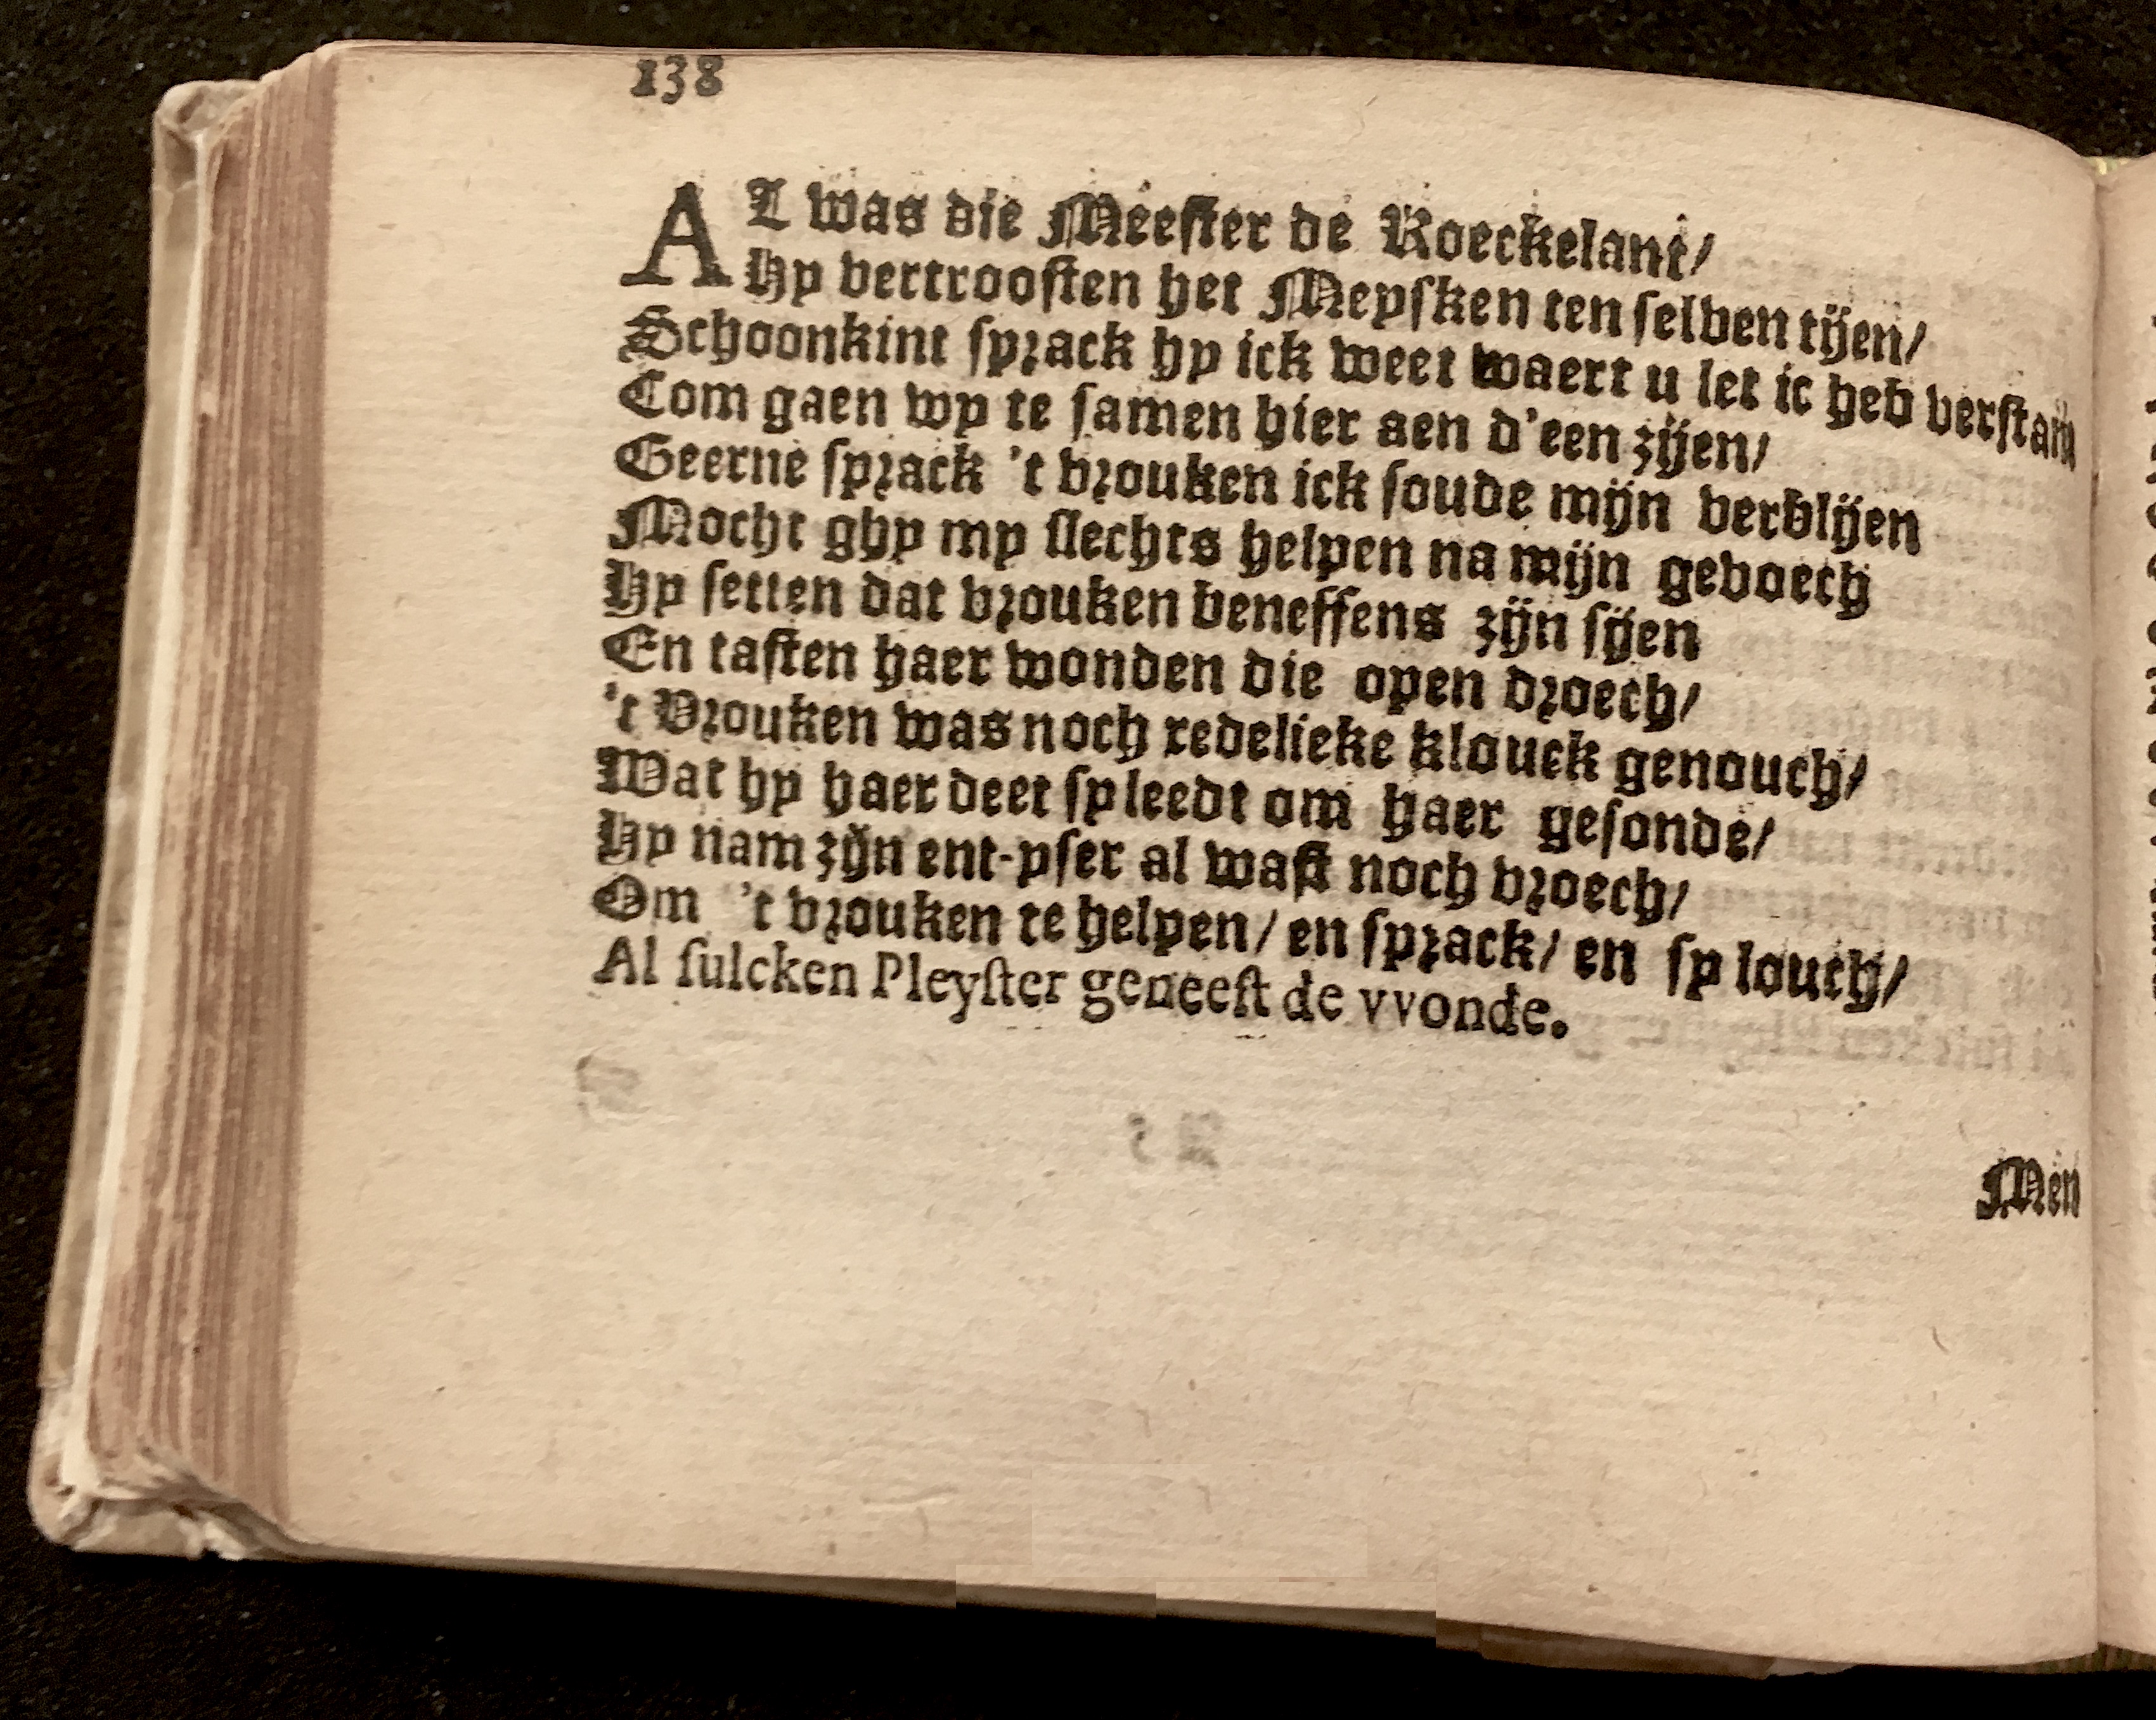 138
AL was die Meester de Roeckelant/
Hy vertroosten het Meysken ten selven tijen/
Schoonkint sprack hy ick weet waert u let ic heb verstant
Com gaen wy te samen hier aen d'een zijen/
Geerne sprack 't vrouken ick soude mijn verblijen
Mocht ghy my slechts helpen na mijn gevoech
Hy setten dat vrouken beneffens zijn sijen
En tasten haer wonden die open droech/
't Vrouken was noch redelicke klouck genouch/
Wat hy haer deet sy leedt om haer gesonde/
Hy nam zijn ent-yser al wast noch vroech/
Om 't vrouken te helpen/ en sprack/ en sy louch/
Al sulcken Pleyster geneest de vvonde.
Men